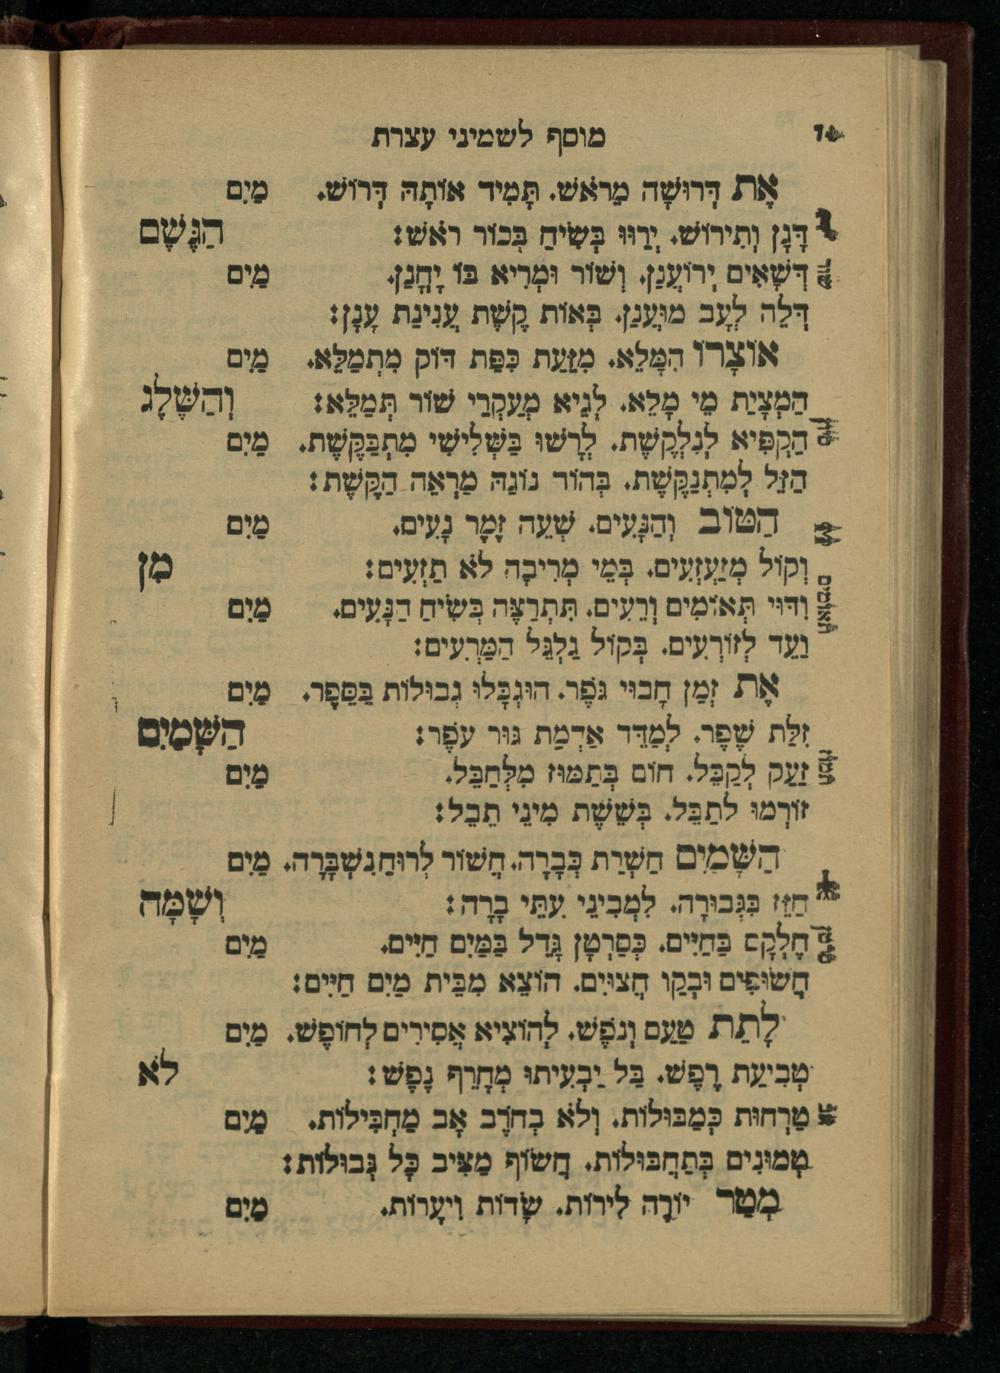 מוסף לשמיני עצרת
אֶת דְּרוּשָׁה מֵרֹאשׁ. תָּמִיד אוֹתָהּ דְּרוֹשׁ. מַיִם
דָּגָן וְתִירוֹשׁ. יְרַוּוּ בְּשִׂיחַ בְּכוֹר רֹאשׁ: הַגֶּשֶׁם
דְּשָׁאִים יְרוֹעֲנַן. וְשׁוֹר וּמְרִיא בּוֹ יֻחֲנַן. מַיִם
דְּלֵה לְעָב מוּעֲנַן. בְּאוֹת קֶשֶׁת עֲנִינַת עָנָן:
אוֹצָרוֹ הִמָּלֵא. מִזַּעַת כִּפַּת דּוֹק מִתְמַלֵּא. מַיִם
הַמְצָיַת מֵי מָלֵא. לְגֵיא מְעֻקְּרֵי שׁוֹר תְּמַלֵּא: וְהַשֶּׁלֶג
הַקְפִּיא לְנִלְקֶשֶׁת. לְרָשׁוּ בַּשְּׁלִישִׁי מִתְבַּקֶּשֶׁת. מַיִם
הַזֵּל לְמִתְנַקֶּשֶׁת. בְּהוֹד נוֹגַהּ מַרְאֵה הַקֶּשֶׁת:
הַטּוֹב וְהַנָּעִים. שְׁעֵה זֶמֶר נָעִים. מַיִם
וְקוֹל מְזַעְזְעִים. בְּמֵי מְרִיבָה לֹא תַזְעִים: מִן
וִדּוּי תְּאוֹמִים וְרֵעִים. תִּתְרַצֶּה בְּשִׂיחַ הַנָּעִים. מַיִם
וַעֵד לְזוֹרְעִים. בְּקוֹל גַּלְגַּל הַמַּרְעִים:
אֶת זְמַן חָבוּי גֹּפֶר. הוּגְבָּלוּ גְבוּלוֹת בַּסֵּפֶר. מַיִם
זִלַּת שֶׁפֶר. לְמַדֵּד אַדְמַת גּוּר עֹפֶר: הַשָּׁמַיִם
זַעַק לְקַבֵּל. חוֹם בְּתַמּוּז מִלְּחַבֵּל. מַיִם
זוֹרְמוּ לְתַבֵּל. בְּשֵׁשֶׁת מִינֵי תֵבֵל:
הַשָּׁמַיִם חַשְׁרַת כְּבָרָה. חֲשׂוֹר לְרוּחַ נִשְׁבָּרָה. מַיִם
חַזֵּז בִּגְבוּרָה. לִמְבִינֵי עִתֵּי בָרָה: וְשָׁמָּה
חֶלְקָם בַּחַיִּים. כְּסַרְטָן גָּדֵל בַּמַּיִם חַיִּים. מַיִם
חֲשׂוּפִים וּבְקַו חֲצוּיִם. הוֹצֵא מִבַּיִת מַיִם חַיִּים:
לָתֵת טַעַם וְנֹפֶשׁ. לְהוֹצִיא אֲסִירִים לְחוֹפֶשׁ. מַיִם
טְבִיעַת רֶפֶשׁ. בַּל יַבְעִיתוּ מְחָרֵף נֶפֶשׁ: לֹא
טַרְחוּת כְּמַבּוּלוֹת. וְלֹא בְחֹרֶב אָב מַחְבִּילוֹת. מַיִם
טְמוּנִים בְּתַחְבּוּלוֹת. חֲשׂוֹף מַצִּיב כָּל גְּבוּלוֹת:
מְטַר יוֹרֶה לִירוֹת. שָׂדוֹת וִיעָרוֹת. מַיִם